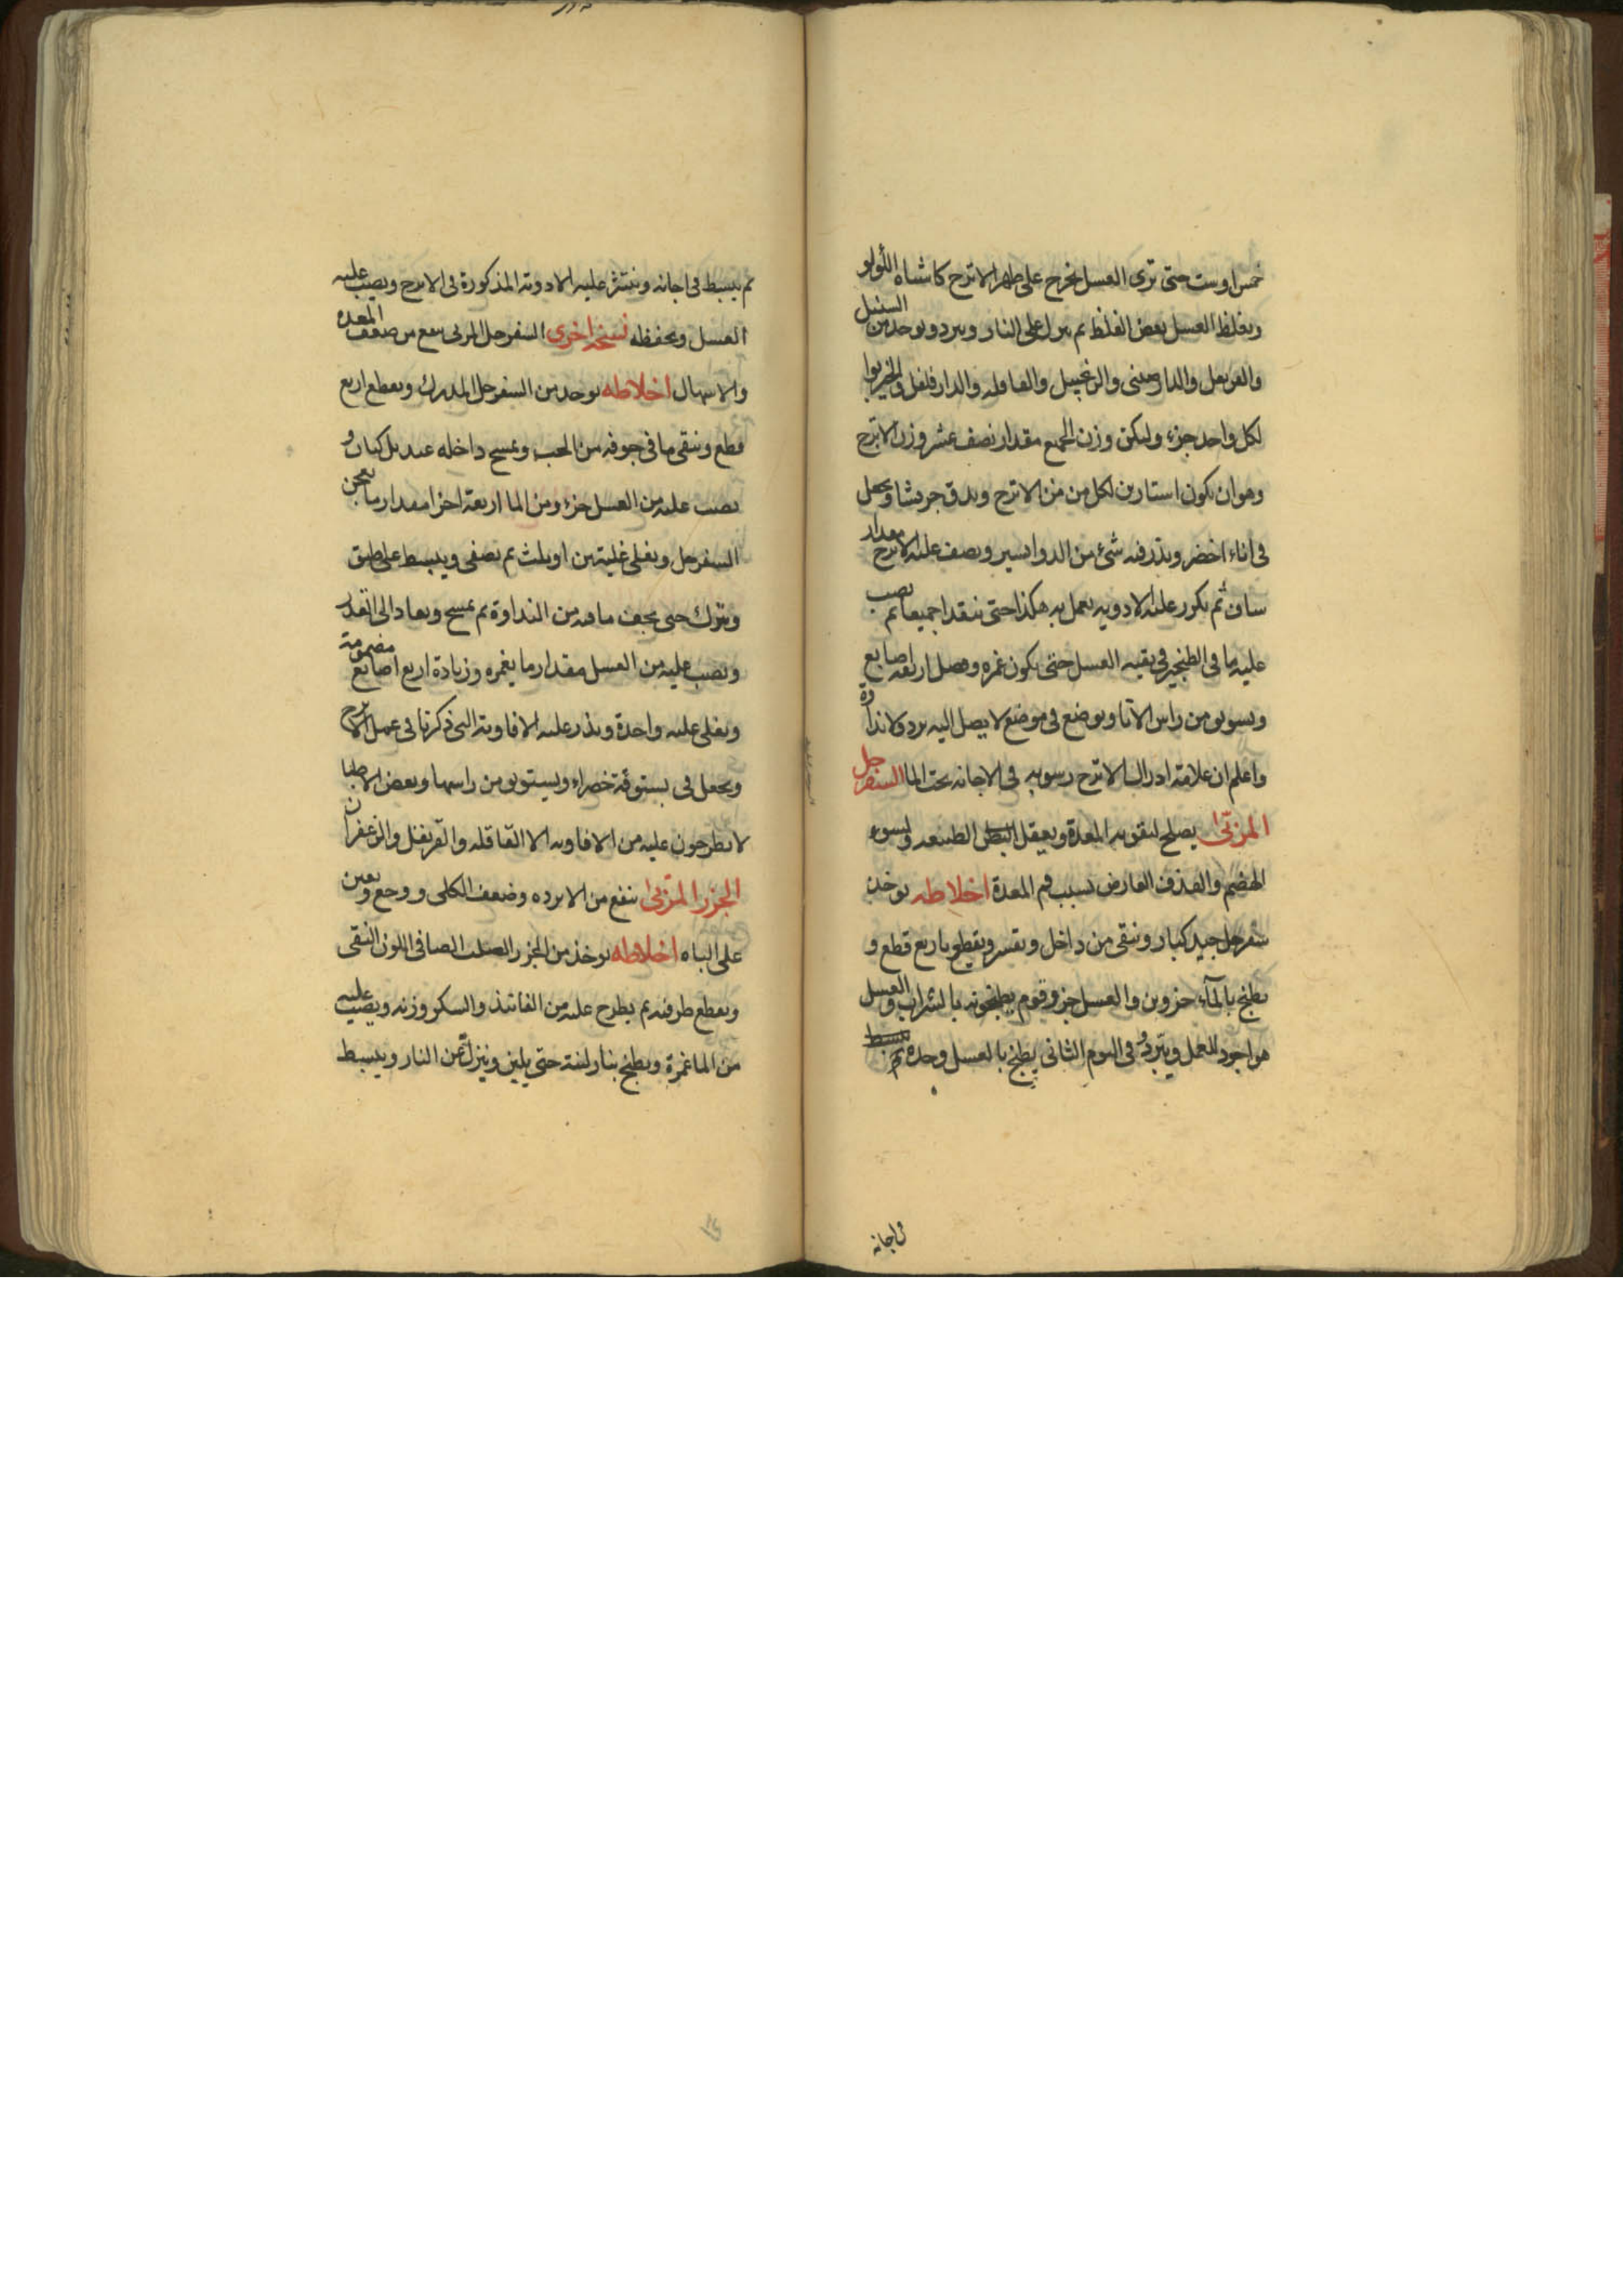 خمس اوست حتى ترى العسل يخرج على ظهر الاترج كاشباه اللولو
ويغلظ العسل بعض الغلظ ثم ينزل على النار ويبرد ويوخذ من السنبل
والقرنفل والدارصينى والزنجبيل والقاقله والدارفلفل والخيربوا
لكل واحد جزء وليكن وزن الجميع مقدار نصف عشر وزن الاترج
وهو ان يكون استارين لكل من من الاترج ويدق جريشا ويجعل
فى اناء اخضر ويذر فيه شئ من الدوا يسير ويصف عليه الاترج مقدار
ساف ثم يكرر عليه الادويه يعمل به هكذا حتى ينفدا جميعا ثم يصب
عليه ما فى الطنجير فى بقيه العسل حتى يكون غمره وفضل اربعه اصابع
ويستوىق من راس الانا ويوضع فى موضع لا يصل اليه برد ولا نداوة
واعلم ان علامة ادراك الاترج رسوبه فى الاجانه تحت الما السفرجل
المربى يصلح لتقويه المعدة ويعقل البطن الطبيعه ولسوء
الهضم والقذف العارض بسبب فم المعدة اخلاطه يوخذ
سفرجل جيد كبار وينقى من داخل ويقشر ويقطع باربع قطع و
يطبخ بالمآء جزوين والعسل جزو وقوم يطبخونه بالشراب والعسل
هو اجود للعمل ويبرد وفى اليوم الثانى يطبخ بالعسل وحده ثم يبسط
فى اجانه
ثم يبسط فى اجانه وينثر عليه الادوية المذكورة فى الاترج ويصب عليه
العسل ويحفظه نسخة اخرى السفرجل المربى ينفع من ضعف المعده
والاسهال اخلاطه يوخذ من السفرجل المدرك ويقطع اربع
قطع وينقى ما فى جوفه من الحب ويمسح داخله بمنديل كتان و
يصب عليه من العسل جزء ومن الما اربعة اجزا مقدار ما يعجن
السفرجل ويغلى غليتين او ثلث ثم يصفى ويبسط على طبق
ويترك حتى يجف ما فيه من النداوة ثم يمسح ويعاد الى القدر
ويصب عليه من العسل مقدار ما يغمره وزيادة اربع اصابع مضمومة
ويغلى غليه واحدة ويذر عليه الافاويه التى ذكرنا فى عمل الاترج
ويجعل فى بستوقة خضراء ويستوىق من راسها وبعض الاطبا
لا يطرحون عليه من الافاويه الا القاقله والقرنفل والزعفران
الجزر المربى ينفع من الابرده وضعف الكلى ووجع ويعين
على الباه اخلاطه يوخذ من الجزر الصلب الصافى اللون النقى
ويقطع طرفيه ثم يطرح عليه من الفانيذ والسكر وزنه ويصب عليه
من الما غمرة ويطبخ بنار لينة حتى يلين وينزل عن النار ويبسط